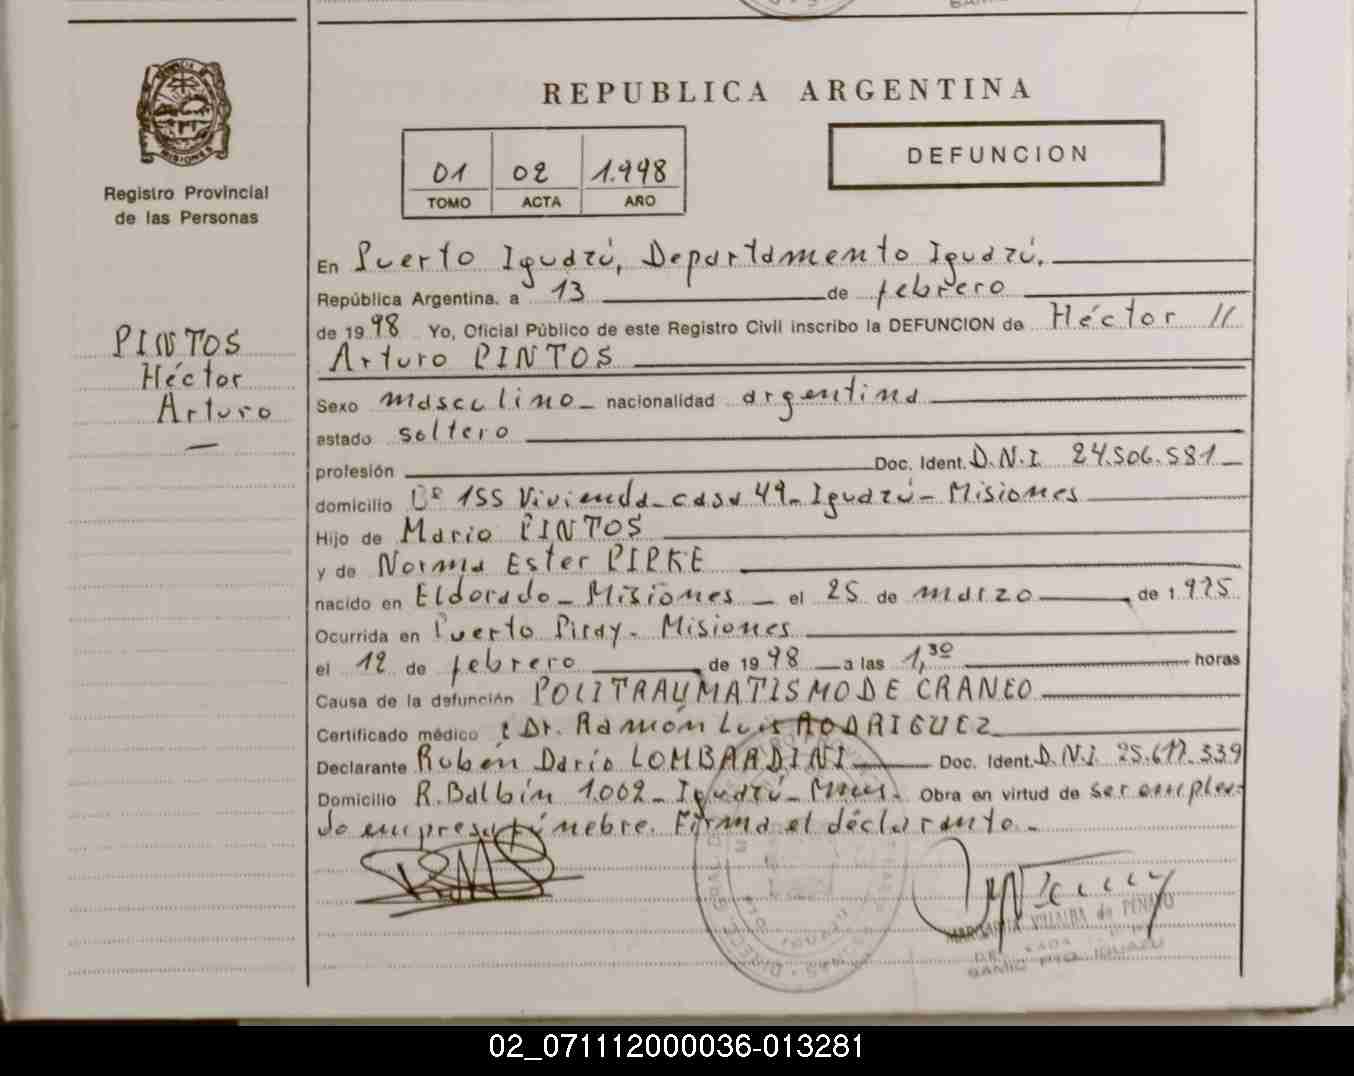 REPUBLICA ARGENTINA
MISIONES
Registro Provincial
de las Personas
01 02 1.998
TOMO ACTA AÑO
DEFUNCION
PINTOS
Héctor
Arturo
En Puerto Iguazú, Departamento Iguazú.
República Argentina, a 13 de febrero
de 1998 Yo, Oficial Público de este Registro Civil inscribo la DEFUNCION de Héctor //
Arturo PINTOS
Sexo masculino nacionalidad argentina
estado soltero
profesión Doc. Ident. D.N.I. 24.506.581
domicilio Bº 155 Vivienda - casa 49 - Iguazú - Misiones
Hijo de Mario PINTOS
y de Norma Ester PIPKE
nacido en Eldorado - Misiones - el 25 de marzo de 1.975
Ocurrida en Puerto Piray - Misiones
el 12 de febrero de 1998 a las 1,30 horas
Causa de la defunción POLITRAUMATISMO DE CRANEO
Certificado médico : Dr. Ramón Luis RODRIGUEZ
Declarante Rubén Darío LOMBARDINI Doc. Ident. D.N.I. 25.617.339
Domicilio R. Balbín 1.002 - Iguazú - Mnes. Obra en virtud de ser emplea-
do empresa fúnebre. Firma el declarante.
MARGARITA VILLALBA de PENAYO
PTO. IGUAZU
02_071112000036-013281